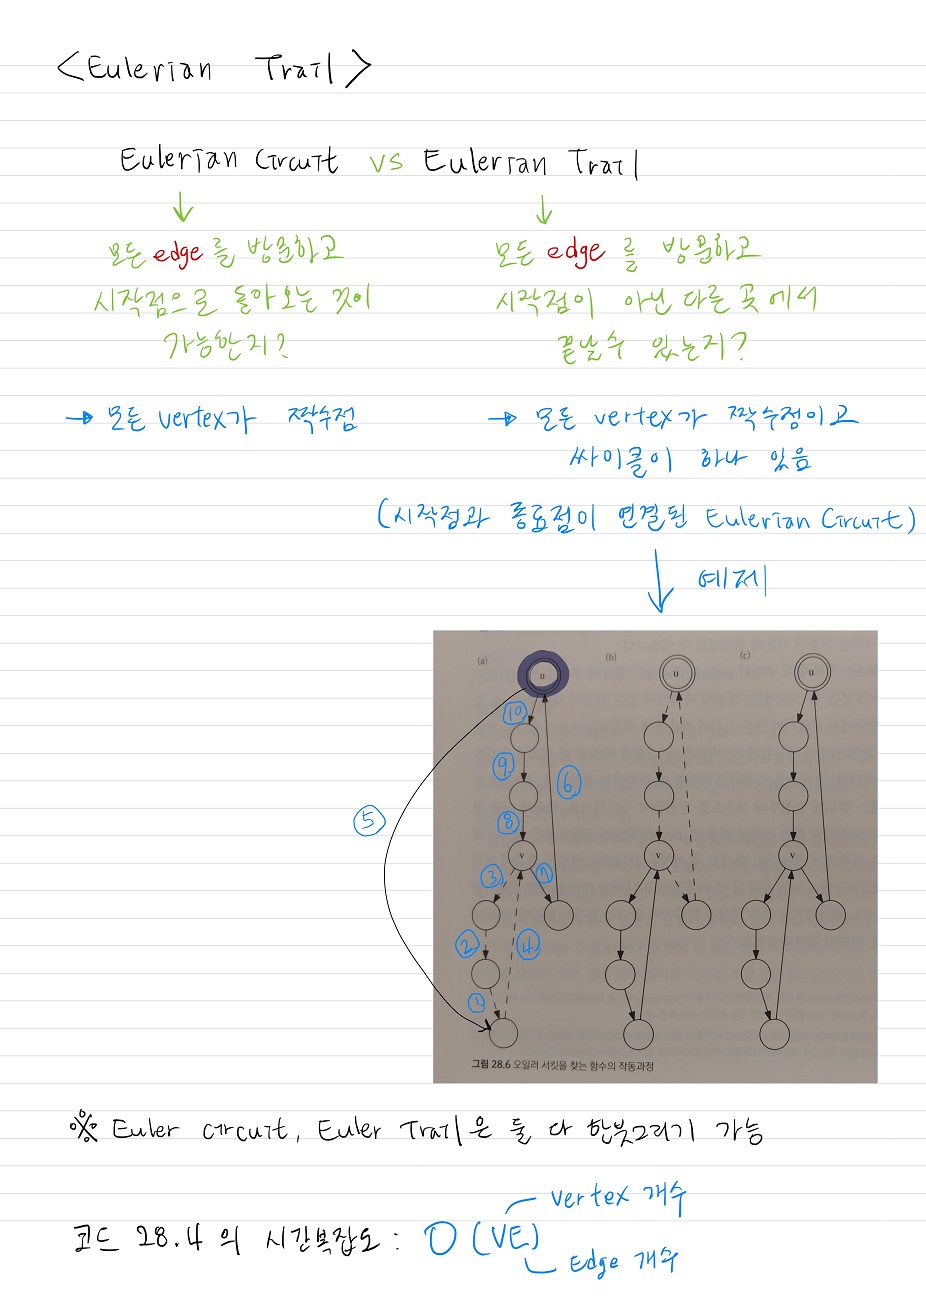 <Eulerian Trail>
Eulerian Circuit vs Eulerian Trail
모든 edge를 방문하고
시작점으로 돌아오는 것이
가능한지?
모든 edge를 방문하고
시작점이 아닌 다른 곳에서
끝날 수 있는지?
→ 모든 vertex가 짝수점
→ 모든 vertex가 짝수점이고
싸이클이 하나 있음
(시작점과 종료점이 연결된 Eulerian Circuit)
예제
(a) (b) (c)
u u u
⑩
⑨
⑥
⑤
⑧
v v v
③ ⑦
② ④
①
그림 28.6 오일러 서킷을 찾는 함수의 작동과정
※ Euler circuit, Euler Trail은 둘 다 한붓그리기 가능
vertex 개수
코드 28.4의 시간복잡도: O(VE)
Edge 개수